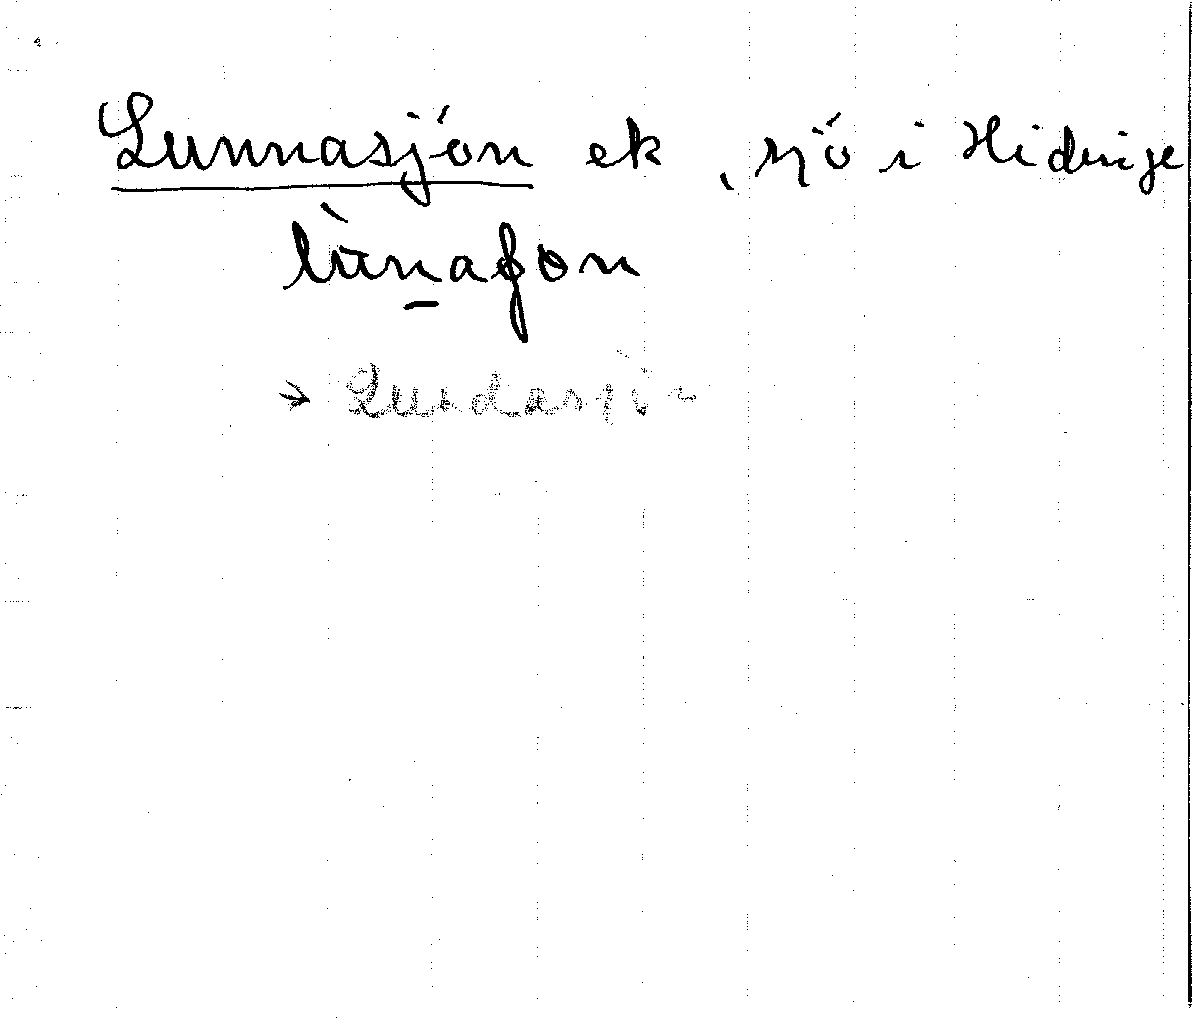 Lunnasjön ek , sjö i Hidinge
lùnaʃøn
→ Lundasjön